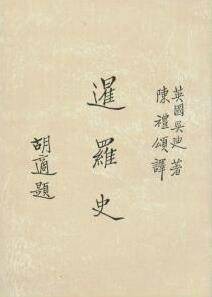 英國吳迪著
陳禮頌譯
暹羅史
胡適題